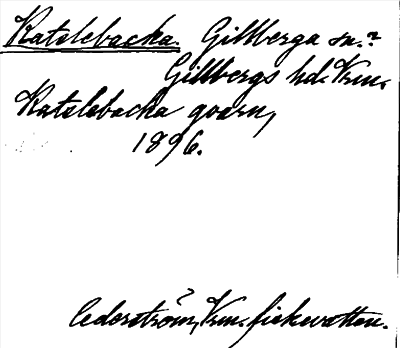 Katslebacka. Gillberga sn.?
Gillbergs hd. Vrm.
Katslebacka qvarn,
1896.
Cederström, Vrm. fiskevatten.